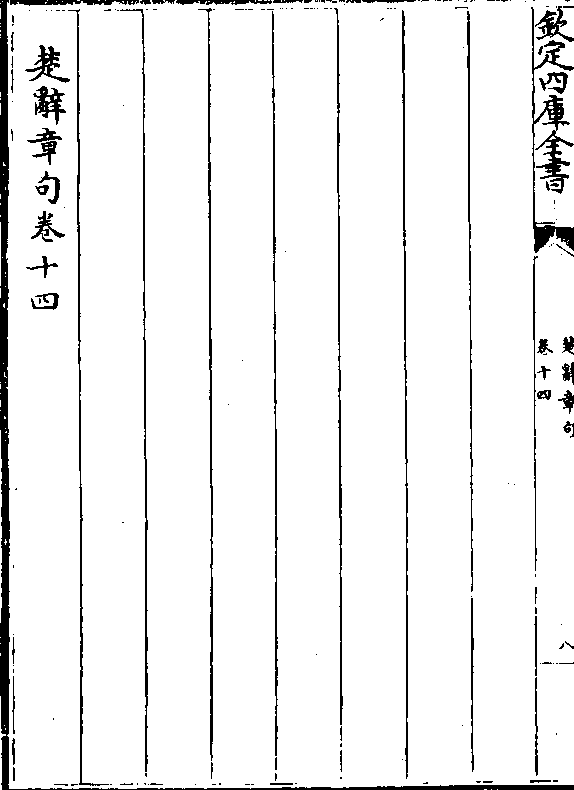 欽定四庫全書
楚辭章句
卷十四
八
楚辭章句卷十四